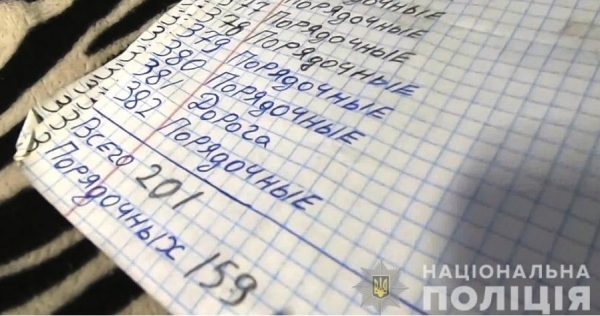 77 Порядочные
78 Порядочные
379 Порядочные
380 Порядочные
381 Дорога
382 Порядочные
Всего 201
Порядочных 159
НАЦІОНАЛЬНА
ПОЛІЦІЯ